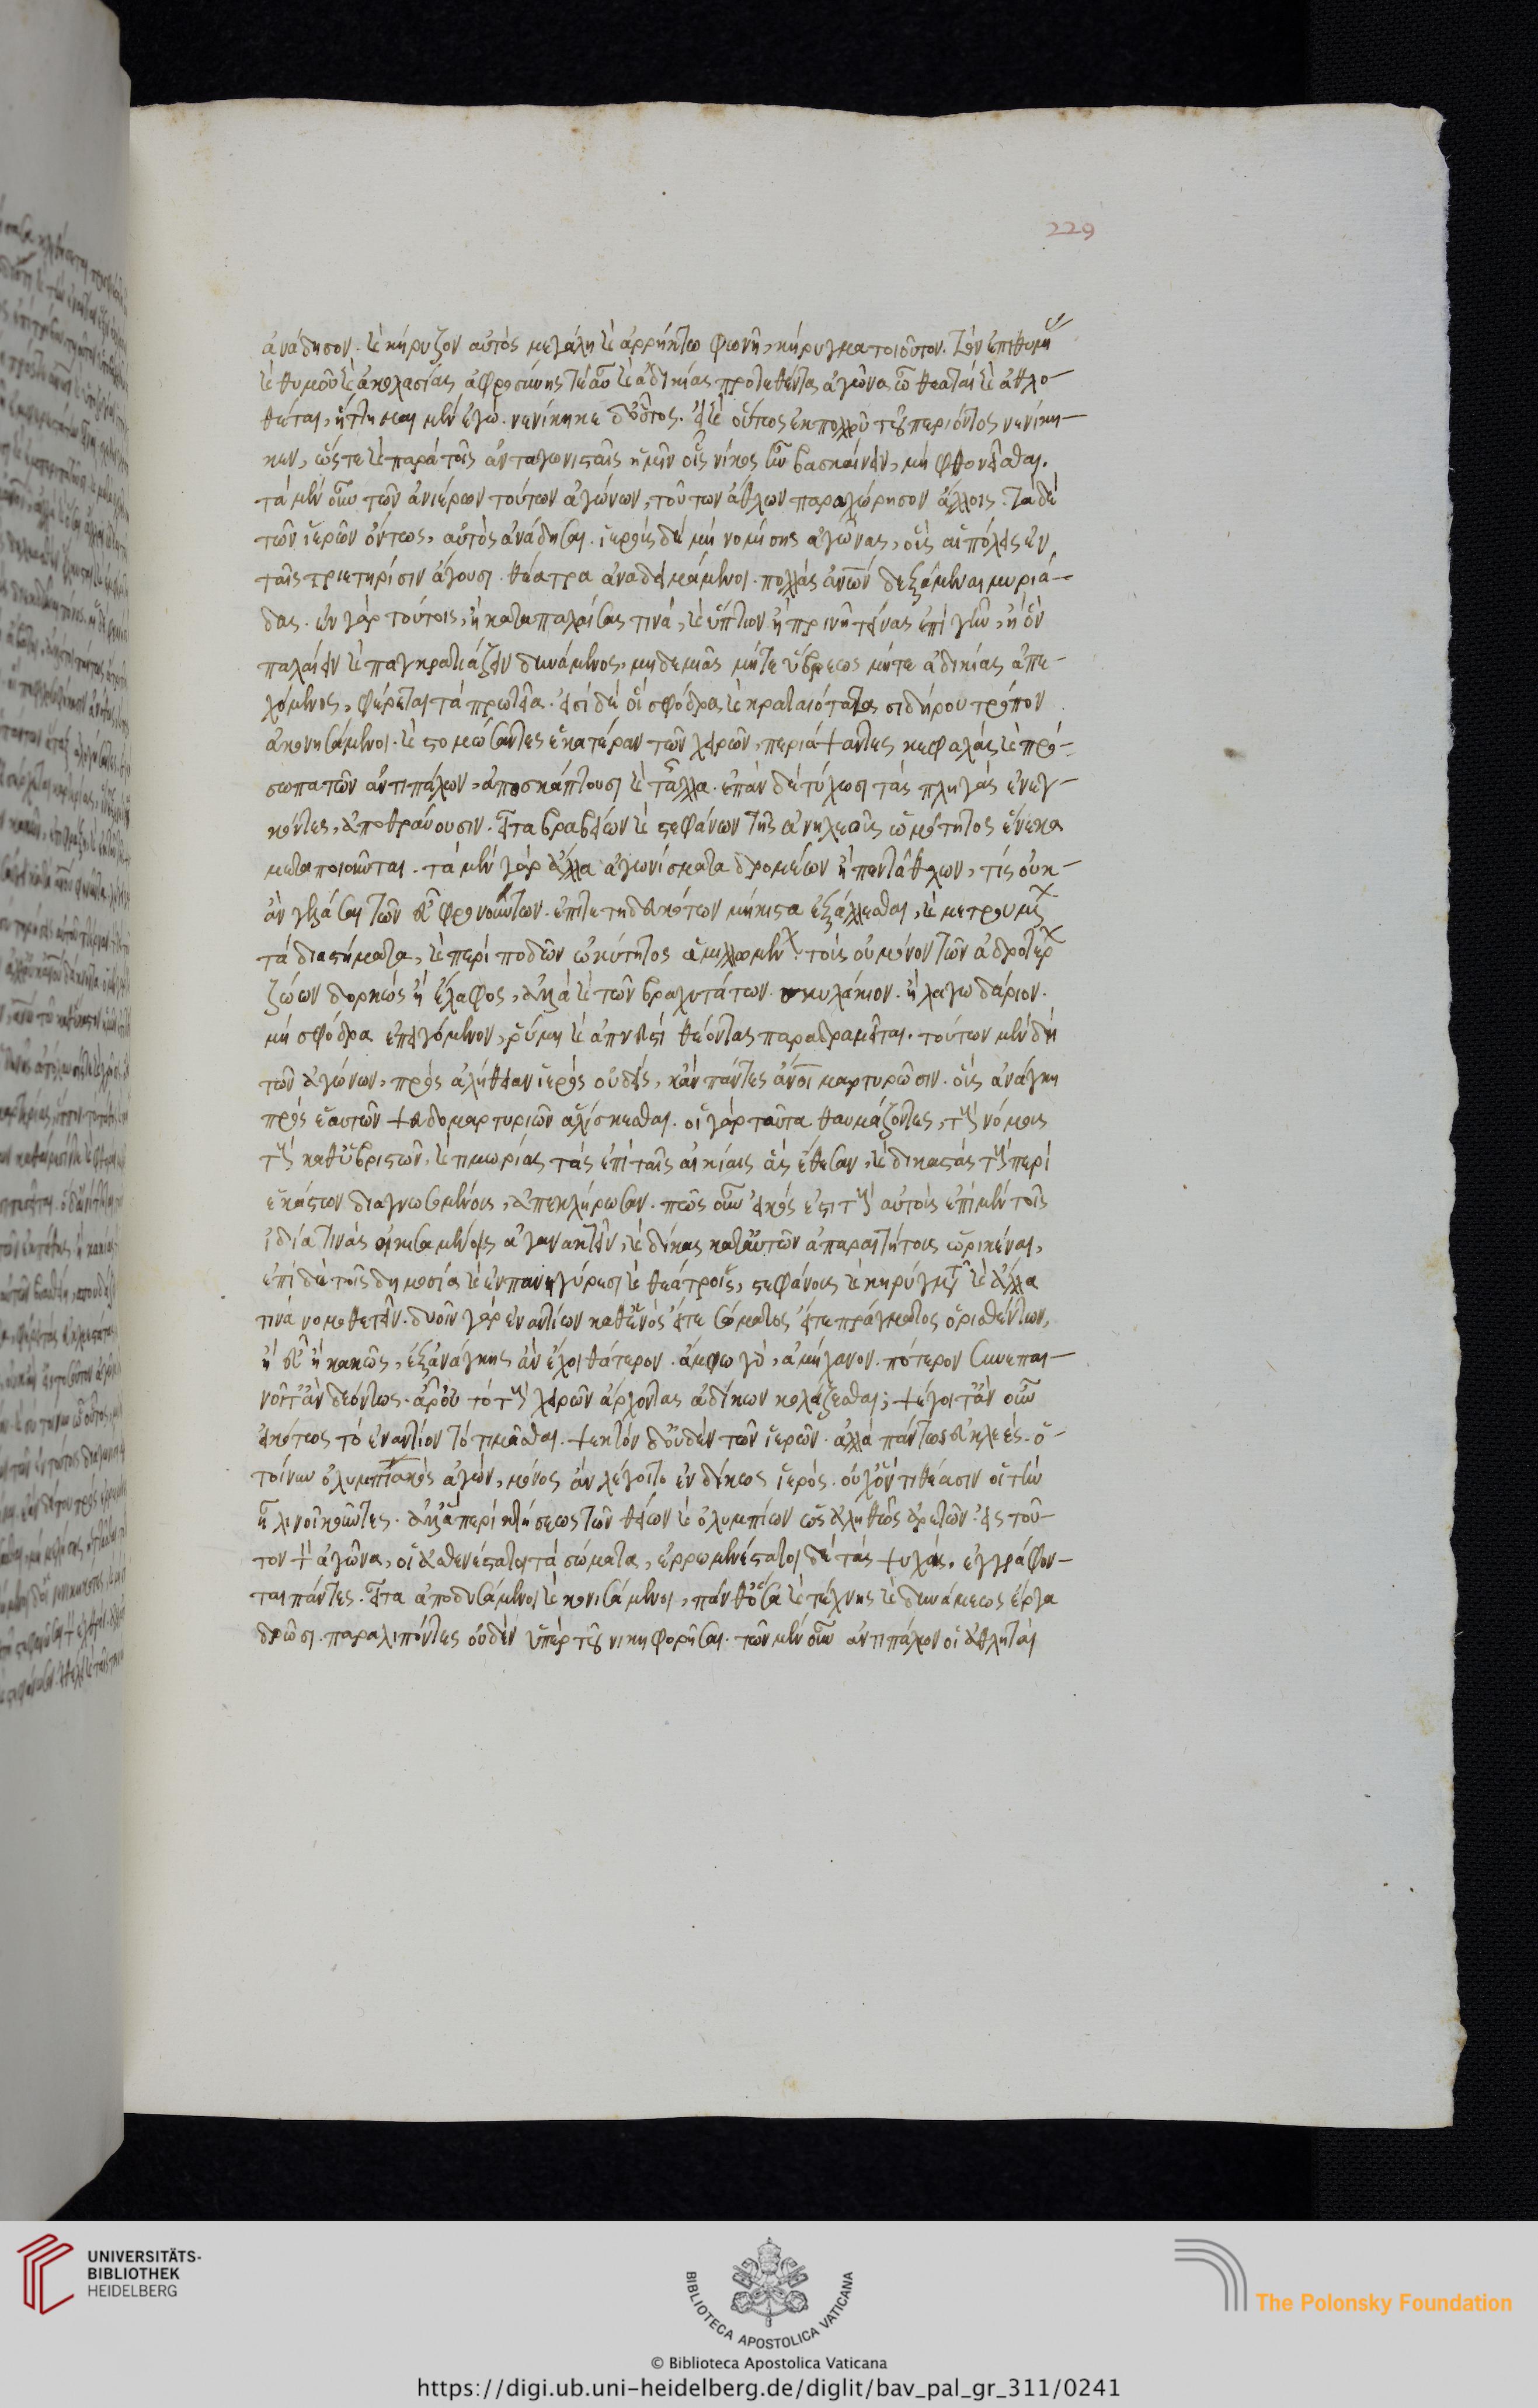 229
ἀνάδησον. καὶ κήρυξον αὐτὸς μεγάλη καὶ ἀρρήκτω φωνῆ, κήρυγμα τοιοῦτον. τὸν ἐπιθυμίας
καὶ θυμοῦ καὶ ἀκολασίας ἀφροσύνης τὲ αὖ καὶ ἀδικίας προτεθέντα ἀγῶνα ὦ θεαταὶ καὶ ἀθλο-
θέται, ἥττημαι μὲν ἐγώ. νενίκηκε δ' οὗτος. καὶ οὕτως ἐκ πολλοῦ τοῦ περιόντος νενίκη-
κεν, ὥστε καὶ παρὰ τοῖς ἀνταγωνισταῖς ἡμῖν οἷς νῖκος ἦν βασκαίνειν, μὴ φθονεῖσθαι.
τὰ μὲν οὖν τῶν ἀνιέρων τούτων ἀγώνων, τούτων ἆθλων παραχώρησον ἄλλοις. τὰ δὲ
τῶν ἱερῶν ὄντως, αὐτὸς ἀνάδησαι. ἱεροὺς δὲ μὴ νομίσης ἀγῶνας, οὓς αἱ πόλεις ἐν
ταῖς τριετηρίσιν ἄγουσι. θέατρα ἀναδειμάμενοι. πολλὰς ἀνθρώπων δεξάμεναι μυριά-
δας. ἐν γὰρ τούτοις, ἢ καταπαλαίσας τινά, καὶ ὕπτιον ἢ πρινῆ τείνας ἐπὶ γῆν, ἢ ὁ
παλαίειν καὶ παγκρατιάζειν δυνάμενος, μηδεμιᾶς μήτε ὕβρεως μήτε ἀδικίας ἀπε-
χόμενος, φέρεται τὰ πρωτεῖα. εἰσὶ δὲ οἳ σφόδρα καὶ κραταιότατα σιδήρου τρόπον
ἀκονησάμενοι. καὶ στομώσαντες ἑκατέραν τῶν χειρῶν, περιάψαντες κεφαλὰς καὶ πρό-
σωπα τῶν ἀντιπάλων, ἀποσκάπτουσι καὶ τἄλλα. ἐπὰν δὲ τύχωσι τὰς πληγὰς ἐνεγ-
κόντες, ἀποθραύουσιν. εἶτα βραβείων καὶ στεφάνων τῆς ἀνηλεοῦς ὠμότητος ἕνεκα
μεταποιοῦνται. τὰ μὲν γὰρ ἄλλα ἀγωνίσματα δρομέων ἢ πεντάθλων, τίς οὐκ
ἂν γελάσαι τῶν εὖ φρονούντων. ἐπιτετηδευκότων μήκιστα ἐξάλλεσθαι, καὶ μετρουμένων
τὰ διαστήματα, καὶ περὶ ποδῶν ὠκύτητος ἁμιλλωμένων. τοῖς οὐ μόνον τῶν ἁδροτέρων
ζώων δορκὰς ἢ ἔλαφος, ἀλλὰ καὶ τῶν βραχυτάτων σκυλάκιον. ἢ λαγωδάριον.
μὴ σφόδρα ἐπειγόμενον, ῥύμη καὶ ἀπνευστὶ θέοντας παραδραμεῖται. τούτων μὲν δὴ
τῶν ἀγώνων, πρὸς ἀλήθειαν ἱερὸς οὐδείς, κἂν πάντες ἄνθρωποι μαρτυρῶσιν. οὓς ἀνάγκη
πρὸς ἑαυτῶν ψευδομαρτυριῶν ἁλίσκεσθαι. οἱ γὰρ ταῦτα θαυμάζοντες, τοὺς νόμους
τοὺς καθ' ὑβριστῶν, καὶ τιμωρίας τὰς ἐπὶ ταῖς αἰκίαις ἃς ἔθεσαν, καὶ δικαστὰς τοὺς περὶ
ἑκάστων διαγνωσομένους, ἀπεκλήρωσαν. πῶς οὖν εἰκός ἐστι τοὺς αὐτοὺς ἐπὶ μὲν τοῖς
ἰδία τινὰς αἰκισαμένοις ἀγανακτεῖν, καὶ δίκας κατ' αὐτῶν ἀπαραιτήτους ὡρικέναι,
ἐπὶ δὲ τοῖς δημοσία καὶ ἐν πανηγύρεσι καὶ θεάτροις, στεφάνους καὶ κηρύγματα καὶ ἄλλα
τινὰ νομοθετεῖν. δυοῖν γὰρ ἐναντίων καθ' ἑνὸς εἴτε σώματος εἴτε πράγματος ὁρισθέντων,
ἢ εὖ ἢ κακῶς, ἐξ ἀνάγκης ἂν ἔχοι θάτερον. ἄμφω γάρ, ἀμήχανον. πότερον οὖν ἐπαι-
νοῖτ' ἂν δεόντως. ἆρ' οὐ τὸ τοὺς χειρῶν ἄρχοντας ἀδίκων κολάζεσθαι; ψέγοιτ' ἂν οὖν
εἰκότως τὸ ἐναντίον τὸ τιμᾶσθαι. ψεκτὸν δ' οὐδὲν τῶν ἱερῶν. ἀλλὰ πάντως εὐκλεές. ὁ
τοίνυν ὀλυμπιακὸς ἀγών, μόνος ἂν λέγοιτο ἐνδίκως ἱερός. οὐχ ὃν τιθέασιν οἱ τὴν
ἦλιν οἰκοῦντες. ἀλλ' ὁ περὶ κτήσεως τῶν θείων καὶ ὀλυμπίων ὡς ἀληθῶς ἀρετῶν. εἰς τοῦ-
τον τὸν ἀγῶνα, οἱ ἀσθενέστατοι τὰ σώματα, ἐρρωμενέστατοι δὲ τὰς ψυχάς, ἐγγράφον-
ται πάντες. εἶτα ἀποδυσάμενοι καὶ κονισάμενοι, πάνθ' ὅσα καὶ τέχνης καὶ δυνάμεως ἔργα
δρῶσι. παραλιπόντες οὐδὲν ὑπὲρ τοῦ νικηφορῆσαι. τῶν μὲν οὖν ἀντιπάλων οἱ ἀθληταὶ
UNIVERSITÄTS-
BIBLIOTHEK
HEIDELBERG
BIBLIOTECA APOSTOLICA VATICANA
The Polonsky Foundation
© Biblioteca Apostolica Vaticana
https://digi.ub.uni-heidelberg.de/diglit/bav_pal_gr_311/0241